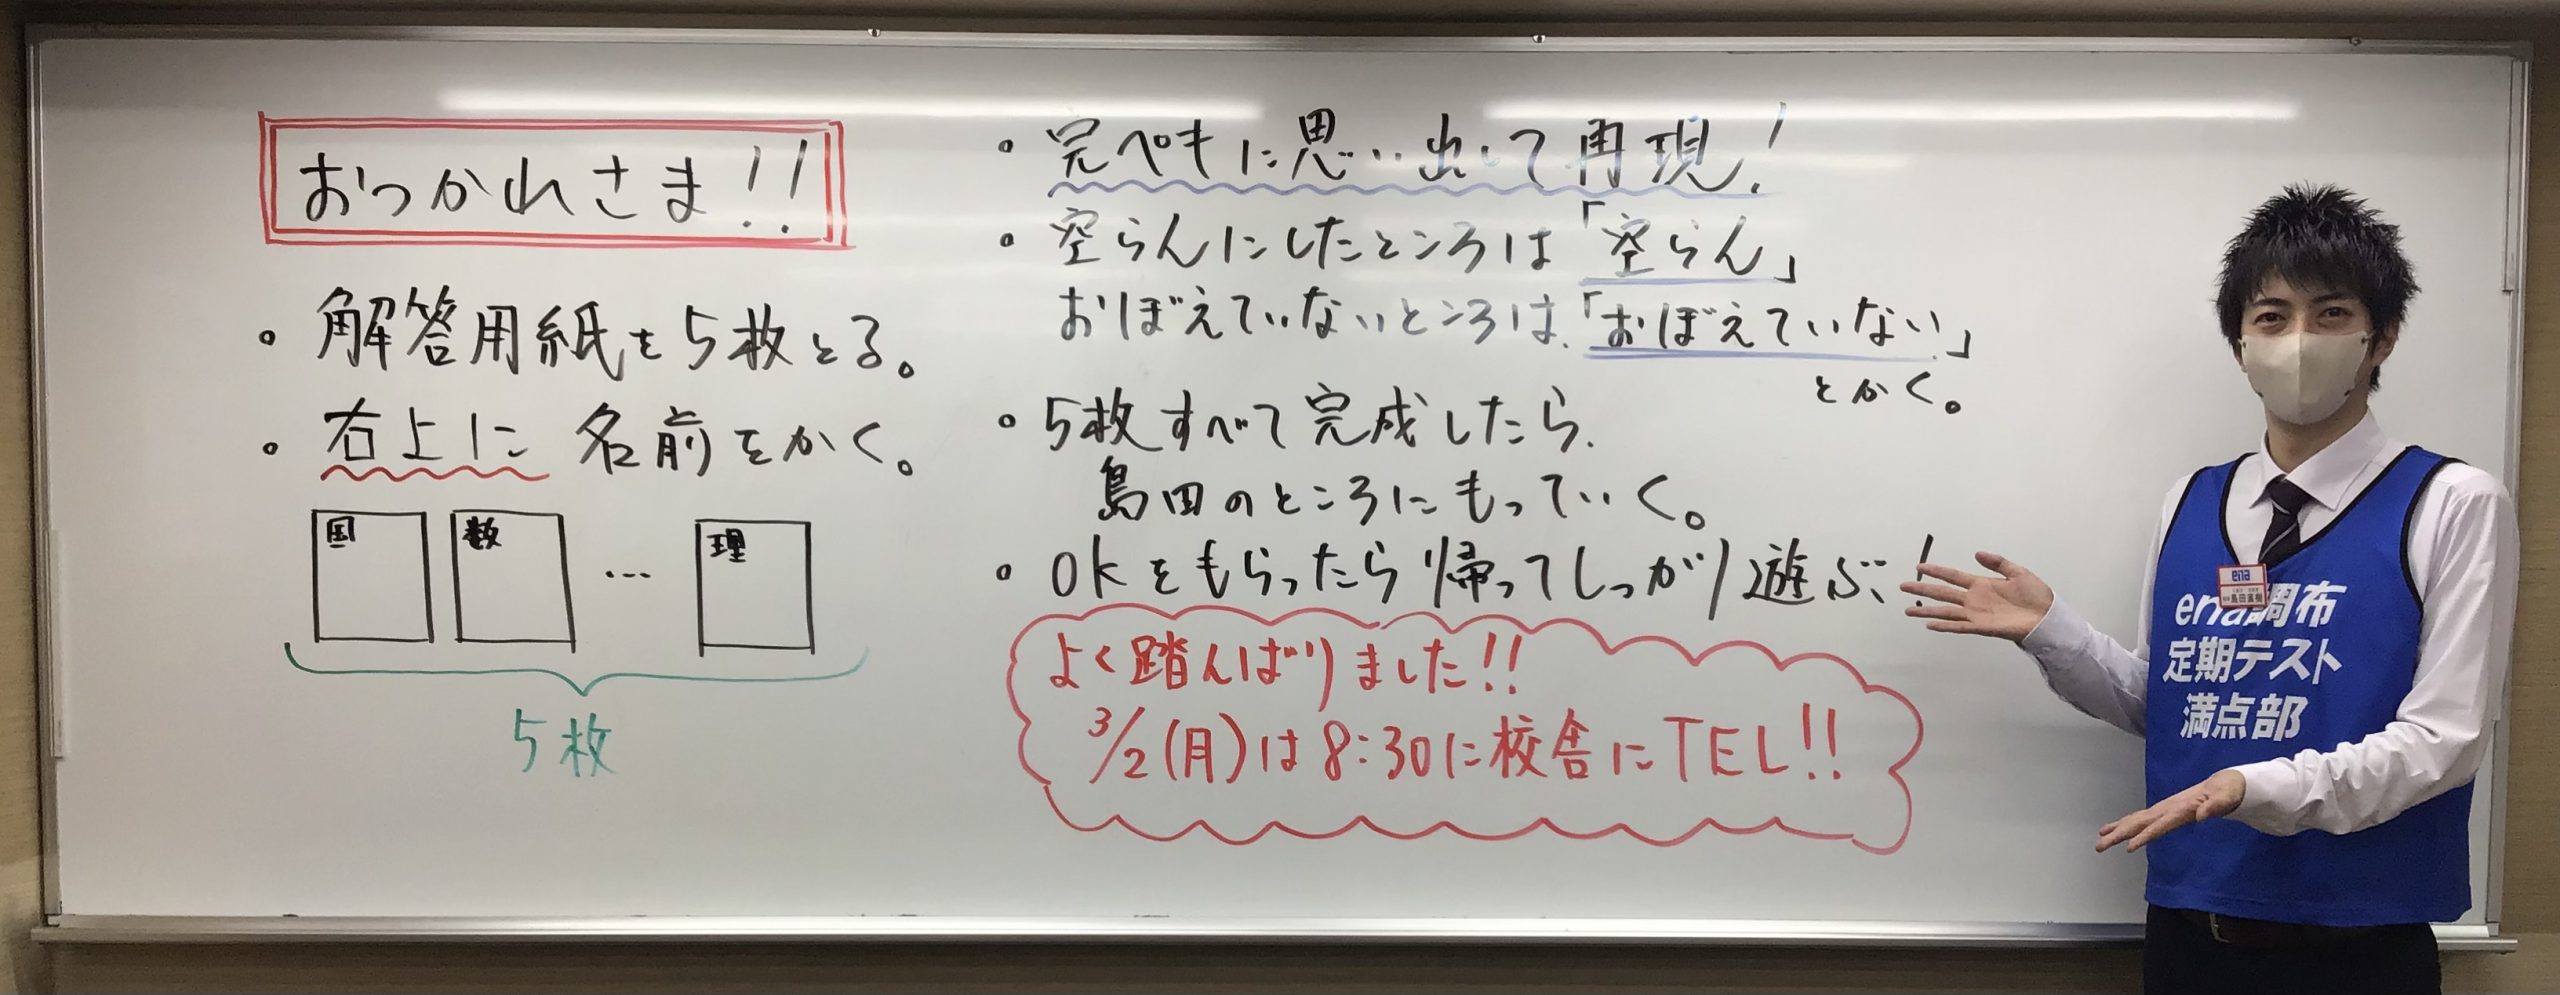 おつかれさま!!
・解答用紙を5枚とる。
・右上に名前をかく。
国 数 … 理
5枚
・完ペキに思い出して再現!
・空らんにしたところは「空らん」
おぼえていないところは、「おぼえていない」
とかく。
・5枚すべて完成したら、
島田のところにもっていく。
・OKをもらったら帰ってしっかり遊ぶ!
よく踏んばりました!!
3/2(月)は8:30に校舎にTEL!!
ena
ena調布
定期テスト
満点部